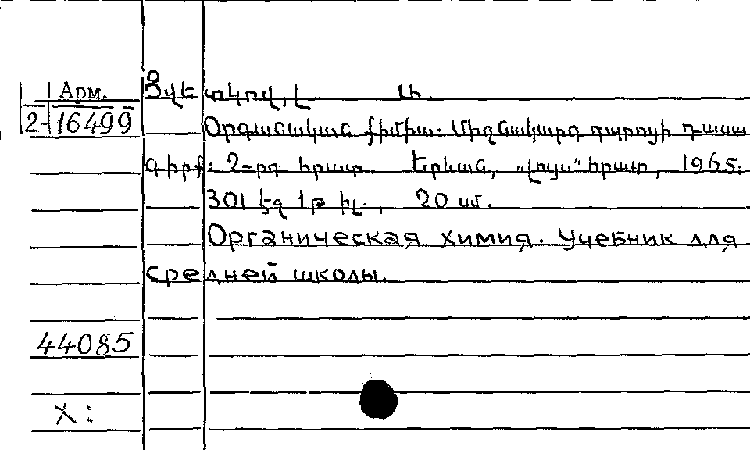 Арм. Ցվետկով, Լ. Ա.
2-16499 Օրգանական քիմիա: Միջնակարգ դպրոցի դաս
գիրք: 2-րդ հրատ. Երևան, „Լույս" հրատ, 1965:
301 էջ 1թ իլ., 20 սմ.
Органическая химия. Учебник для
средней школы.
44085
X: